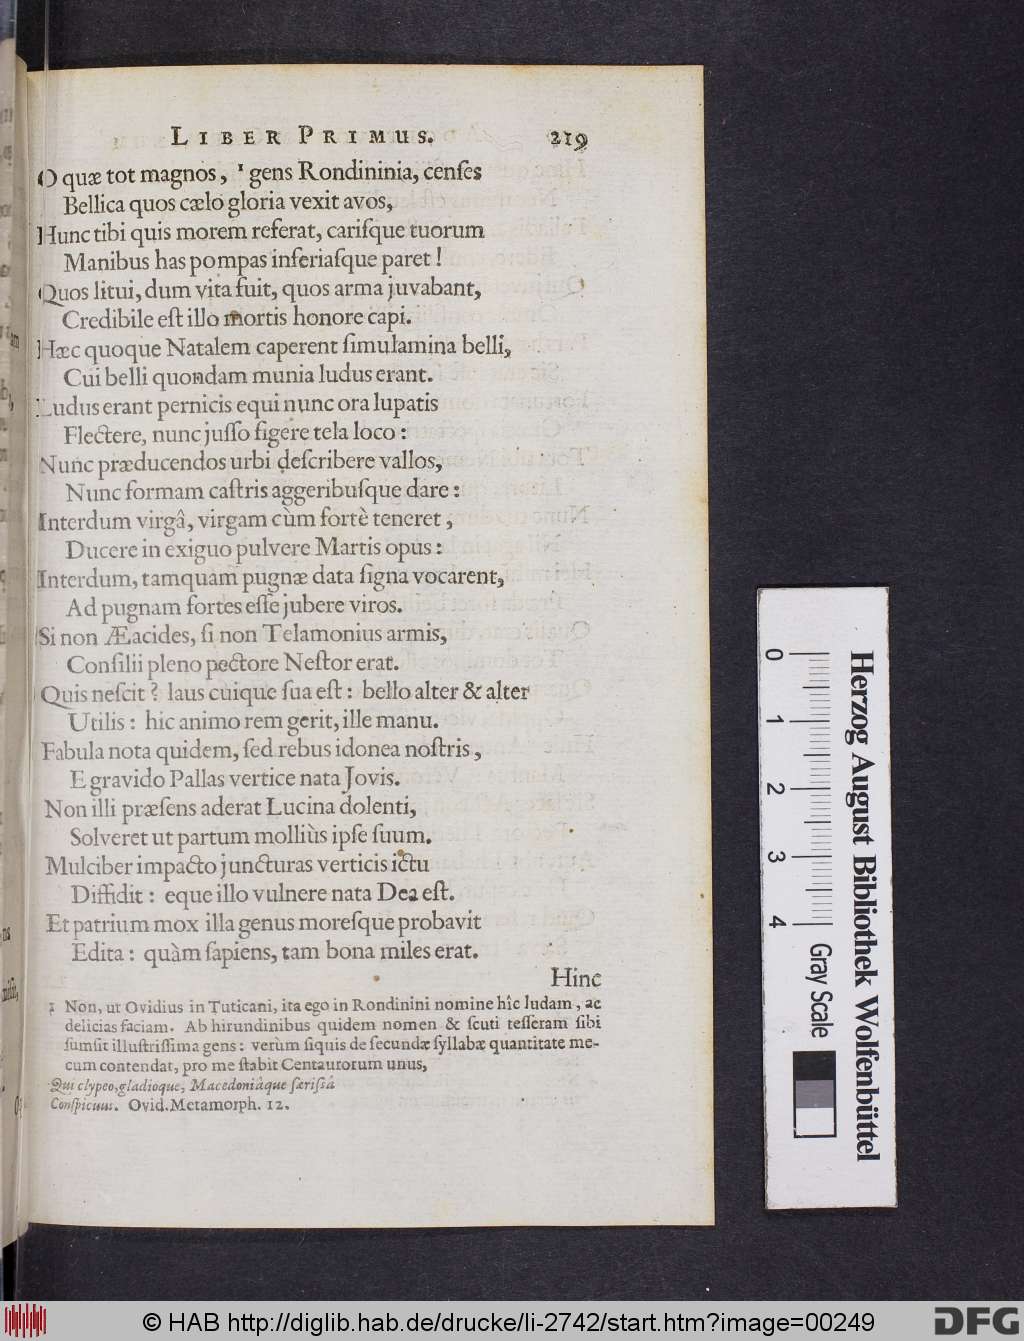 LIBER PRIMUS. 219
O quæ tot magnos, ¹ gens Rondininia, cenſes
Bellica quos cælo gloria vexit avos,
Hunc tibi quis morem referat, cariſque tuorum
Manibus has pompas inferiaſque paret!
Quos litui, dum vita fuit, quos arma juvabant,
Credibile eſt illo mortis honore capi.
Hæc quoque Natalem caperent ſimulamina belli,
Cui belli quondam munia ludus erant.
Ludus erant pernicis equi nunc ora lupatis
Flectere, nunc juſſo figere tela loco:
Nunc præducendos urbi deſcribere vallos,
Nunc formam caſtris aggeribuſque dare:
Interdum virgâ, virgam cùm fortè teneret,
Ducere in exiguo pulvere Martis opus:
Interdum, tamquam pugnæ data ſigna vocarent,
Ad pugnam fortes eſſe jubere viros.
Si non Æacides, ſi non Telamonius armis,
Conſilii pleno pectore Neſtor erat.
Quis neſcit? laus cuique ſua eſt: bello alter & alter
Utilis: hic animo rem gerit, ille manu.
Fabula nota quidem, ſed rebus idonea noſtris,
E gravido Pallas vertice nata Jovis.
Non illi præſens aderat Lucina dolenti,
Solveret ut partum molliùs ipſe ſuum.
Mulciber impacto juncturas verticis ictu
Diffidit: eque illo vulnere nata Dea eſt.
Et patrium mox illa genus moreſque probavit
Edita: quàm ſapiens, tam bona miles erat.
Hinc
1 Non, ut Ovidius in Tuticani, ita ego in Rondinini nomine hîc ludam, ac
delicias faciam. Ab hirundinibus quidem nomen & ſcuti teſſeram ſibi
ſumſit illuſtriſſima gens: verùm ſiquis de ſecundæ ſyllabæ quantitate me-
cum contendat, pro me ſtabit Centaurorum unus,
Qui clypeo, gladioque, Macedoniâque ſæriſſâ
Conſpicuus. Ovid. Metamorph. 12.
Herzog August Bibliothek Wolfenbüttel
0 1 2 3 4
Gray Scale
© HAB http://diglib.hab.de/drucke/li-2742/start.htm?image=00249
DFG